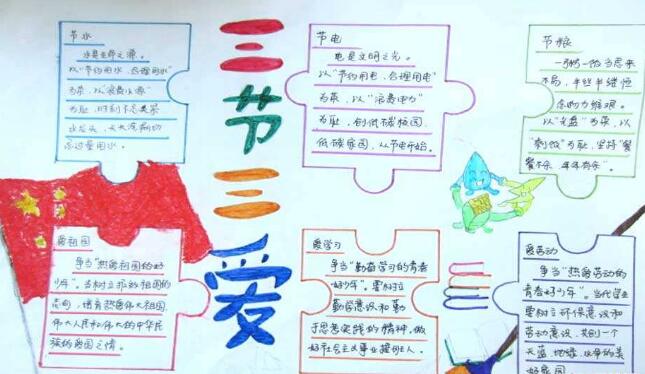 三节三爱
节水
水是生命之源。
以"节约用水、合理用水"
为荣，以"浪费水源"
为耻，
节电
电是文明之光。
以"节约用电、合理用电"
为荣，以"浪费电力"
为耻，创低碳校园，
低碳家园，从节电开始。
节粮
一粥一饭当思来
不易，半丝半缕恒
念物力维艰。
以"光盘"为荣，以
"剩饭"为耻，坚持"餐
餐不余，年年有余"。
爱祖国
争当"热爱祖国的好
少年"。
伟大人民和伟大的中华民
族的爱国之情。
爱学习
争当"勤奋学习的青春
好少年"。要树立
勤学意识和勤
于思考实践的精神，做
好社会主义事业接班人。
爱劳动
争当"热爱劳动的
青春好少年"。当代学生
要树立环保意识和
劳动意识，共创一个
天蓝、地绿、水净的美
好家园。